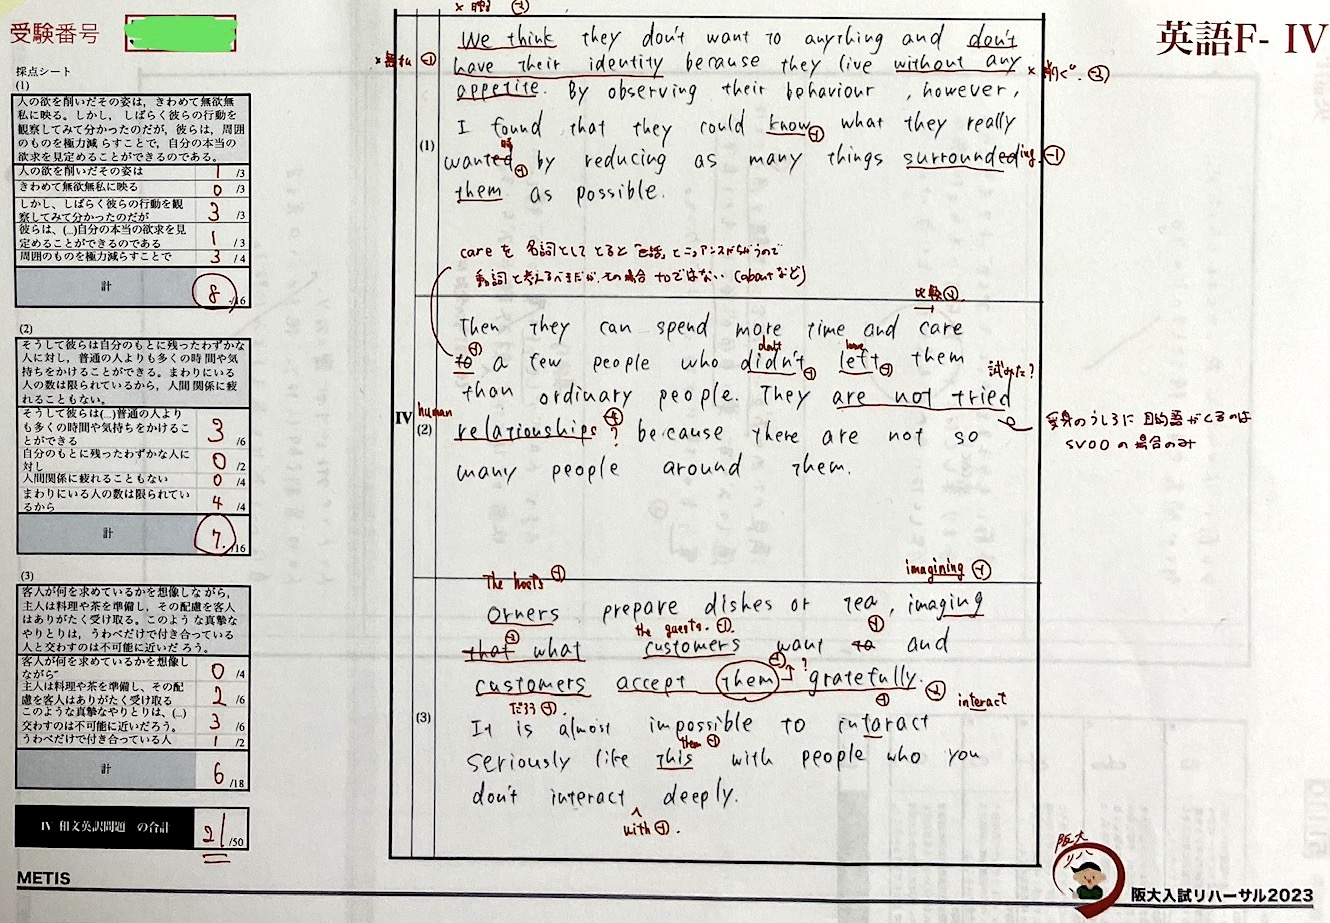 受験番号
英語F- Ⅳ
採点シート
(1)
人の欲を削いだその姿は，きわめて無欲無
私に映る。しかし，しばらく彼らの行動を
観察してみて分かったのだが，彼らは，周囲
のものを極力減らすことで，自分の本当の
欲求を見定めることができるのである。
人の欲を削いだその姿は 1 /3
きわめて無欲無私に映る 0 /3
しかし、しばらく彼らの行動を観
察してみて分かったのだが 3 /3
彼らは、(...)自分の本当の欲求を見
定めることができるのである 1 /3
周囲のものを極力減らすことで 3 /4
計 8 /16
(2)
そうして彼らは自分のもとに残ったわずかな
人に対し，普通の人よりも多くの時間や気
持ちをかけることができる。まわりにいる
人の数は限られているから，人間関係に疲
れることもない。
そうして彼らは(...)普通の人より
も多くの時間や気持ちをかけるこ
とができる 3 /6
自分のもとに残ったわずかな人に
対し 0 /2
人間関係に疲れることもない 0 /4
まわりにいる人の数は限られてい
るから 4 /4
計 7. /16
(3)
客人が何を求めているかを想像しながら，
主人は料理や茶を準備し，その配慮を客人
はありがたく受け取る。このような真摯な
やりとりは，うわべだけで付き合っている
人と交わすのは不可能に近いだろう。
客人が何を求めているかを想像し
ながら 0 /4
主人は料理や茶を準備し、その配
慮を客人はありがたく受け取る 2 /6
このような真摯なやりとりは、(...)
交わすのは不可能に近いだろう。 3 /6
うわべだけで付き合っている人 1 /2
計 6 /18
Ⅳ 和文英訳問題 の合計 21 /50
METIS
Ⅳ
(1)
We think they don't want to anything and don't
have their identity because they live without any
appetite. By observing their behaviour , however,
I found that they could know -1 what they really
wanted by reducing as many things surrounded ing -1
them as possible.
careを名詞としてとると「世話」とニュアンスがちがうので
動詞と考えるべきだが、その場合 toではない (aboutなど)
比較 -1
(2)
Then they can spend more time and care
to -1 a few people who didn't don't -1 left leave -1 them
than ordinary people. They are not tried 試みた?
human relationships -4 ? because there are not so
many people around them.
受身のうしろに目的語がくるのは
SVOOの場合のみ
(3)
The hosts -1
imagining -1
Orners prepare dishes or tea, imaging
that what the guests. -1 customers want to -1 and
customers accept them ? gratefully. -1
It is almost impossible to intaract interact
seriously like this them -1 with people who you
don't interact deeply.
with -1.
阪大
リハ
阪大入試リハーサル2023